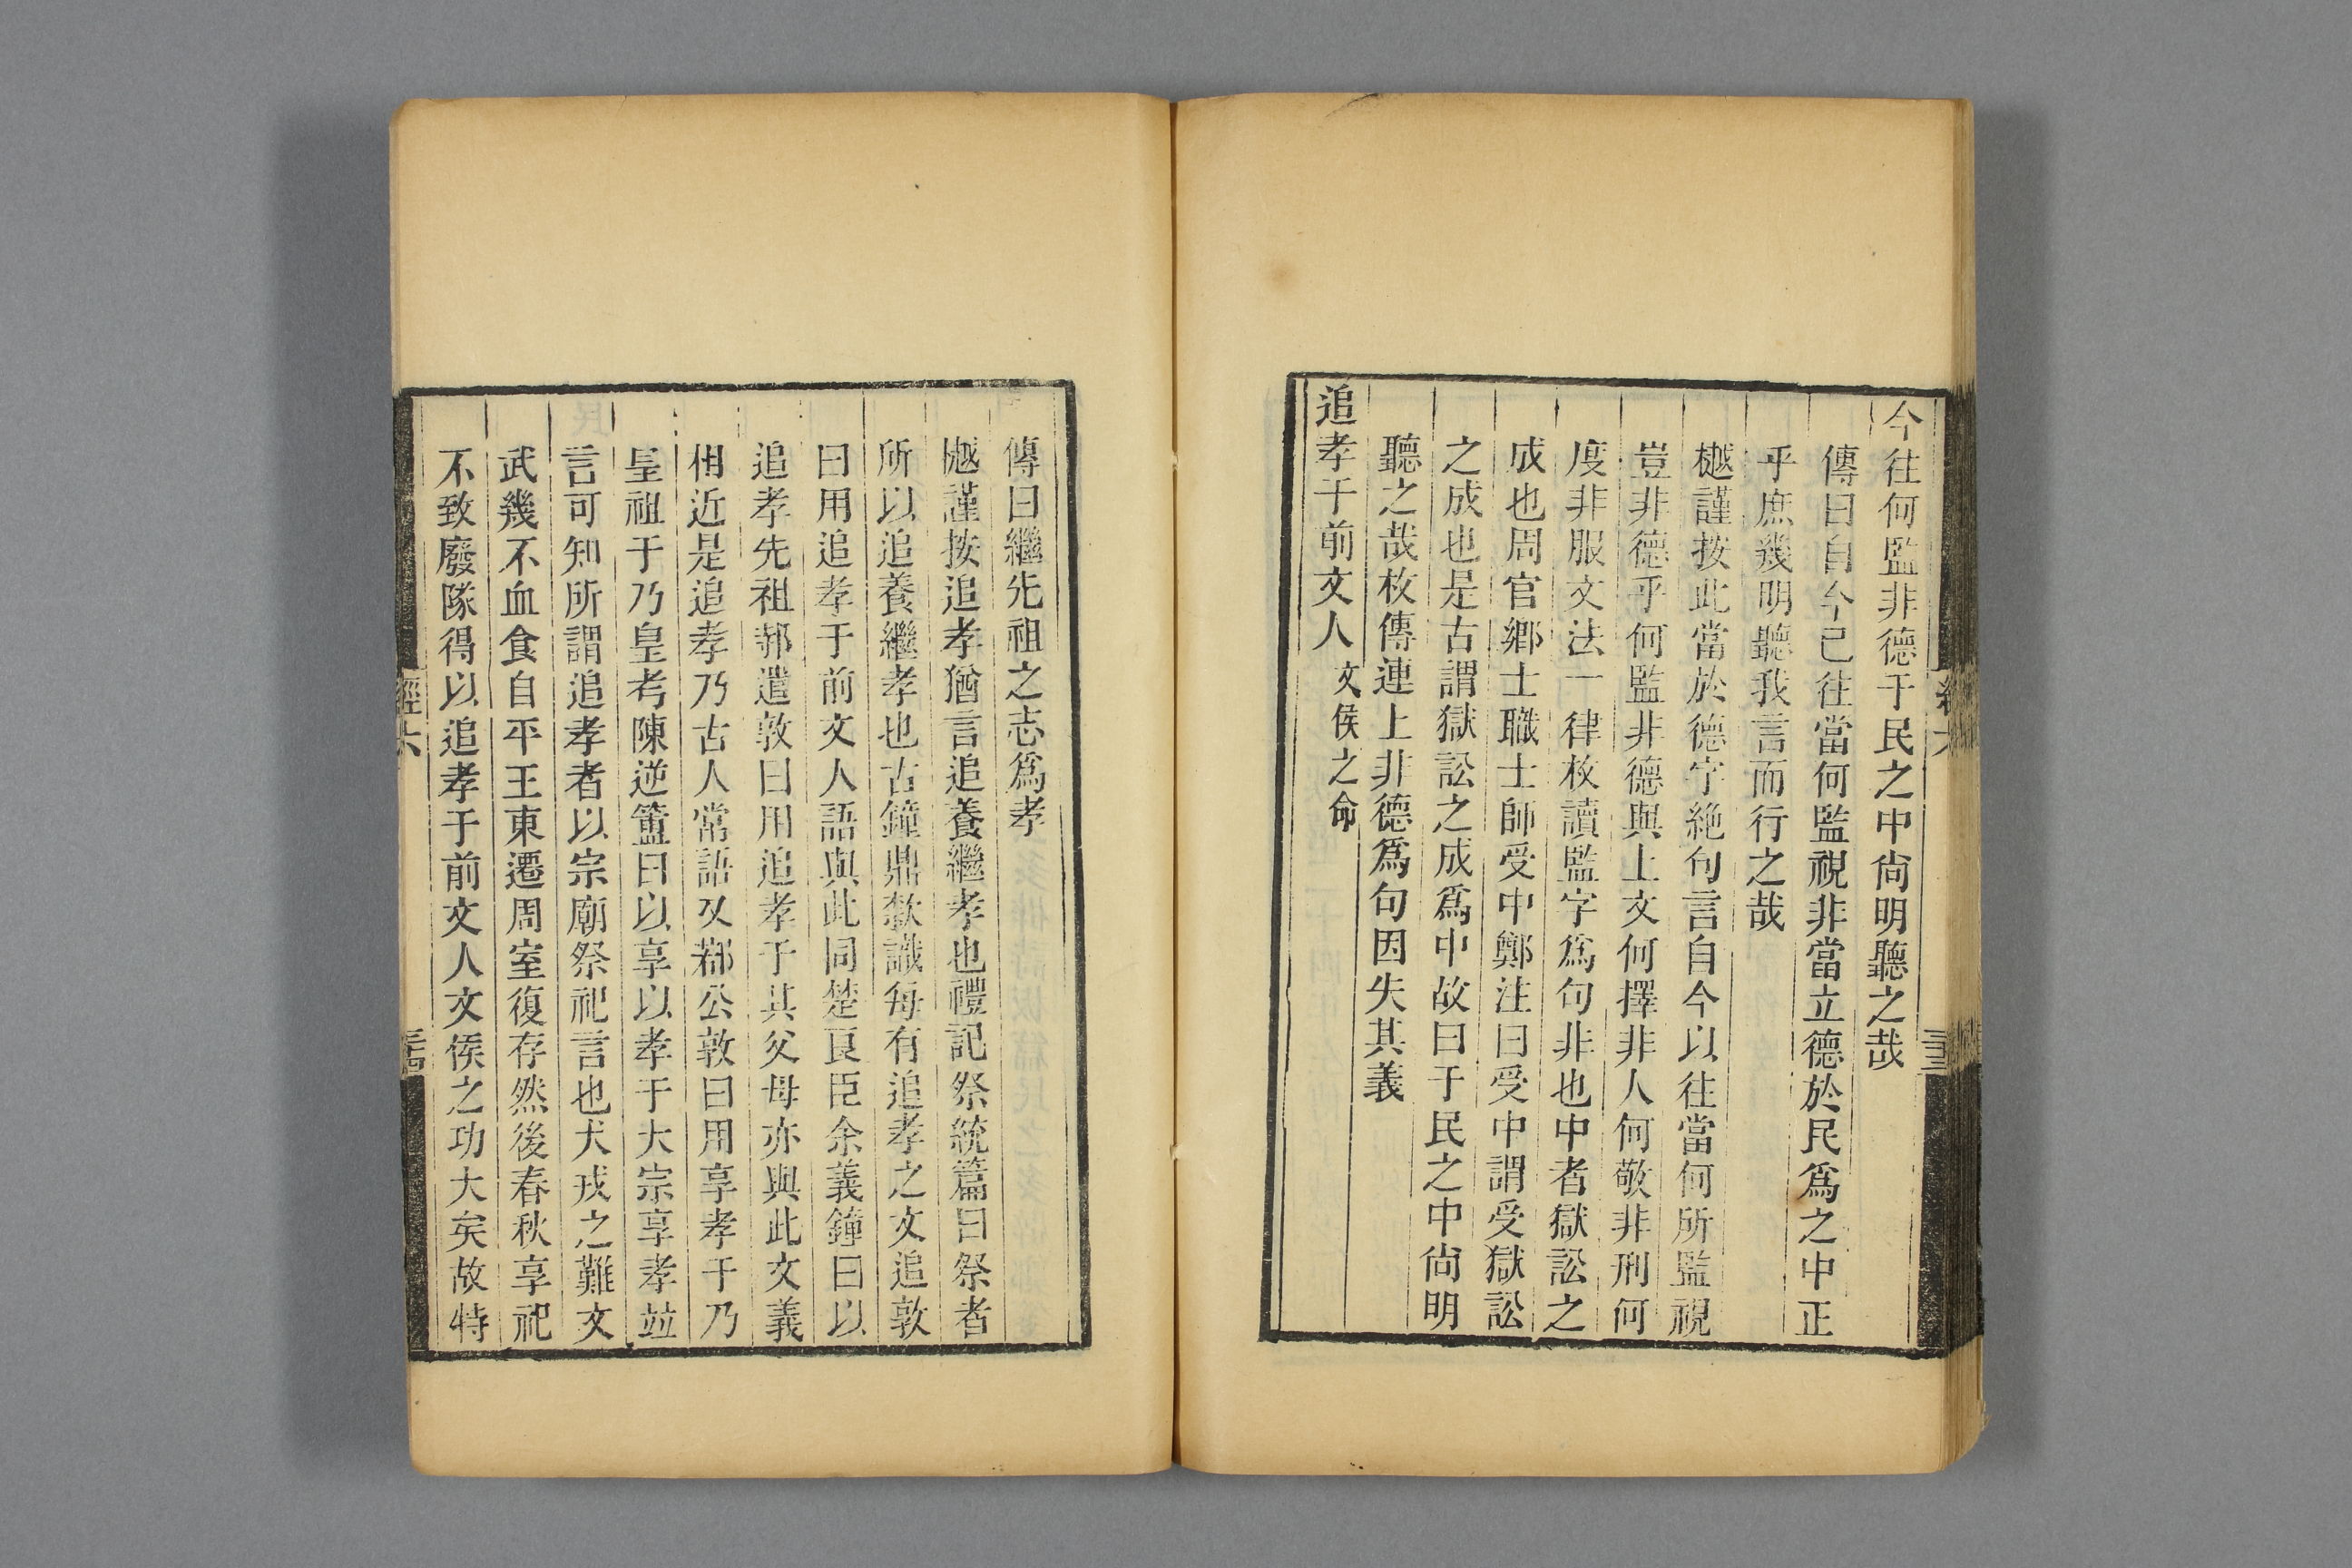 今往何監非德于民之中尙明聽之哉
傳曰自今已往當何監視非當立德於民爲之中正
乎庶幾明聽我言而行之哉
樾謹按此當於德字絶句言自今以往當何所監視
豈非德乎何監非德與上文何擇非人何敬非刑何
度非服文法一律枚讀監字爲句非也中者獄訟之
成也周官鄉士職士師受中鄭注曰受中謂受獄訟
之成也是古謂獄訟之成爲中故曰于民之中尙明
聽之哉枚傳連上非德爲句因失其義
追孝于前文人 文侯之命
傳曰繼先祖之志爲孝
樾謹按追孝猶言追養繼孝也禮記祭統篇曰祭者
所以追養繼孝也古鐘鼎款識每有追孝之文追敦
曰用追孝于前文人語與此同楚良臣余義鐘曰以
追孝先祖郝遣敦曰用追孝于其父母亦與此文義
相近是追孝乃古人常語又鄀公敦曰用享孝于乃
皇祖于乃皇考陳逆簠曰以享以孝于大宗享孝竝
言可知所謂追孝者以宗廟祭祀言也犬戎之難文
武幾不血食自平王東遷周室復存然後春秋享祀
不致廢隊得以追孝于前文人文侯之功大矣故特
經六